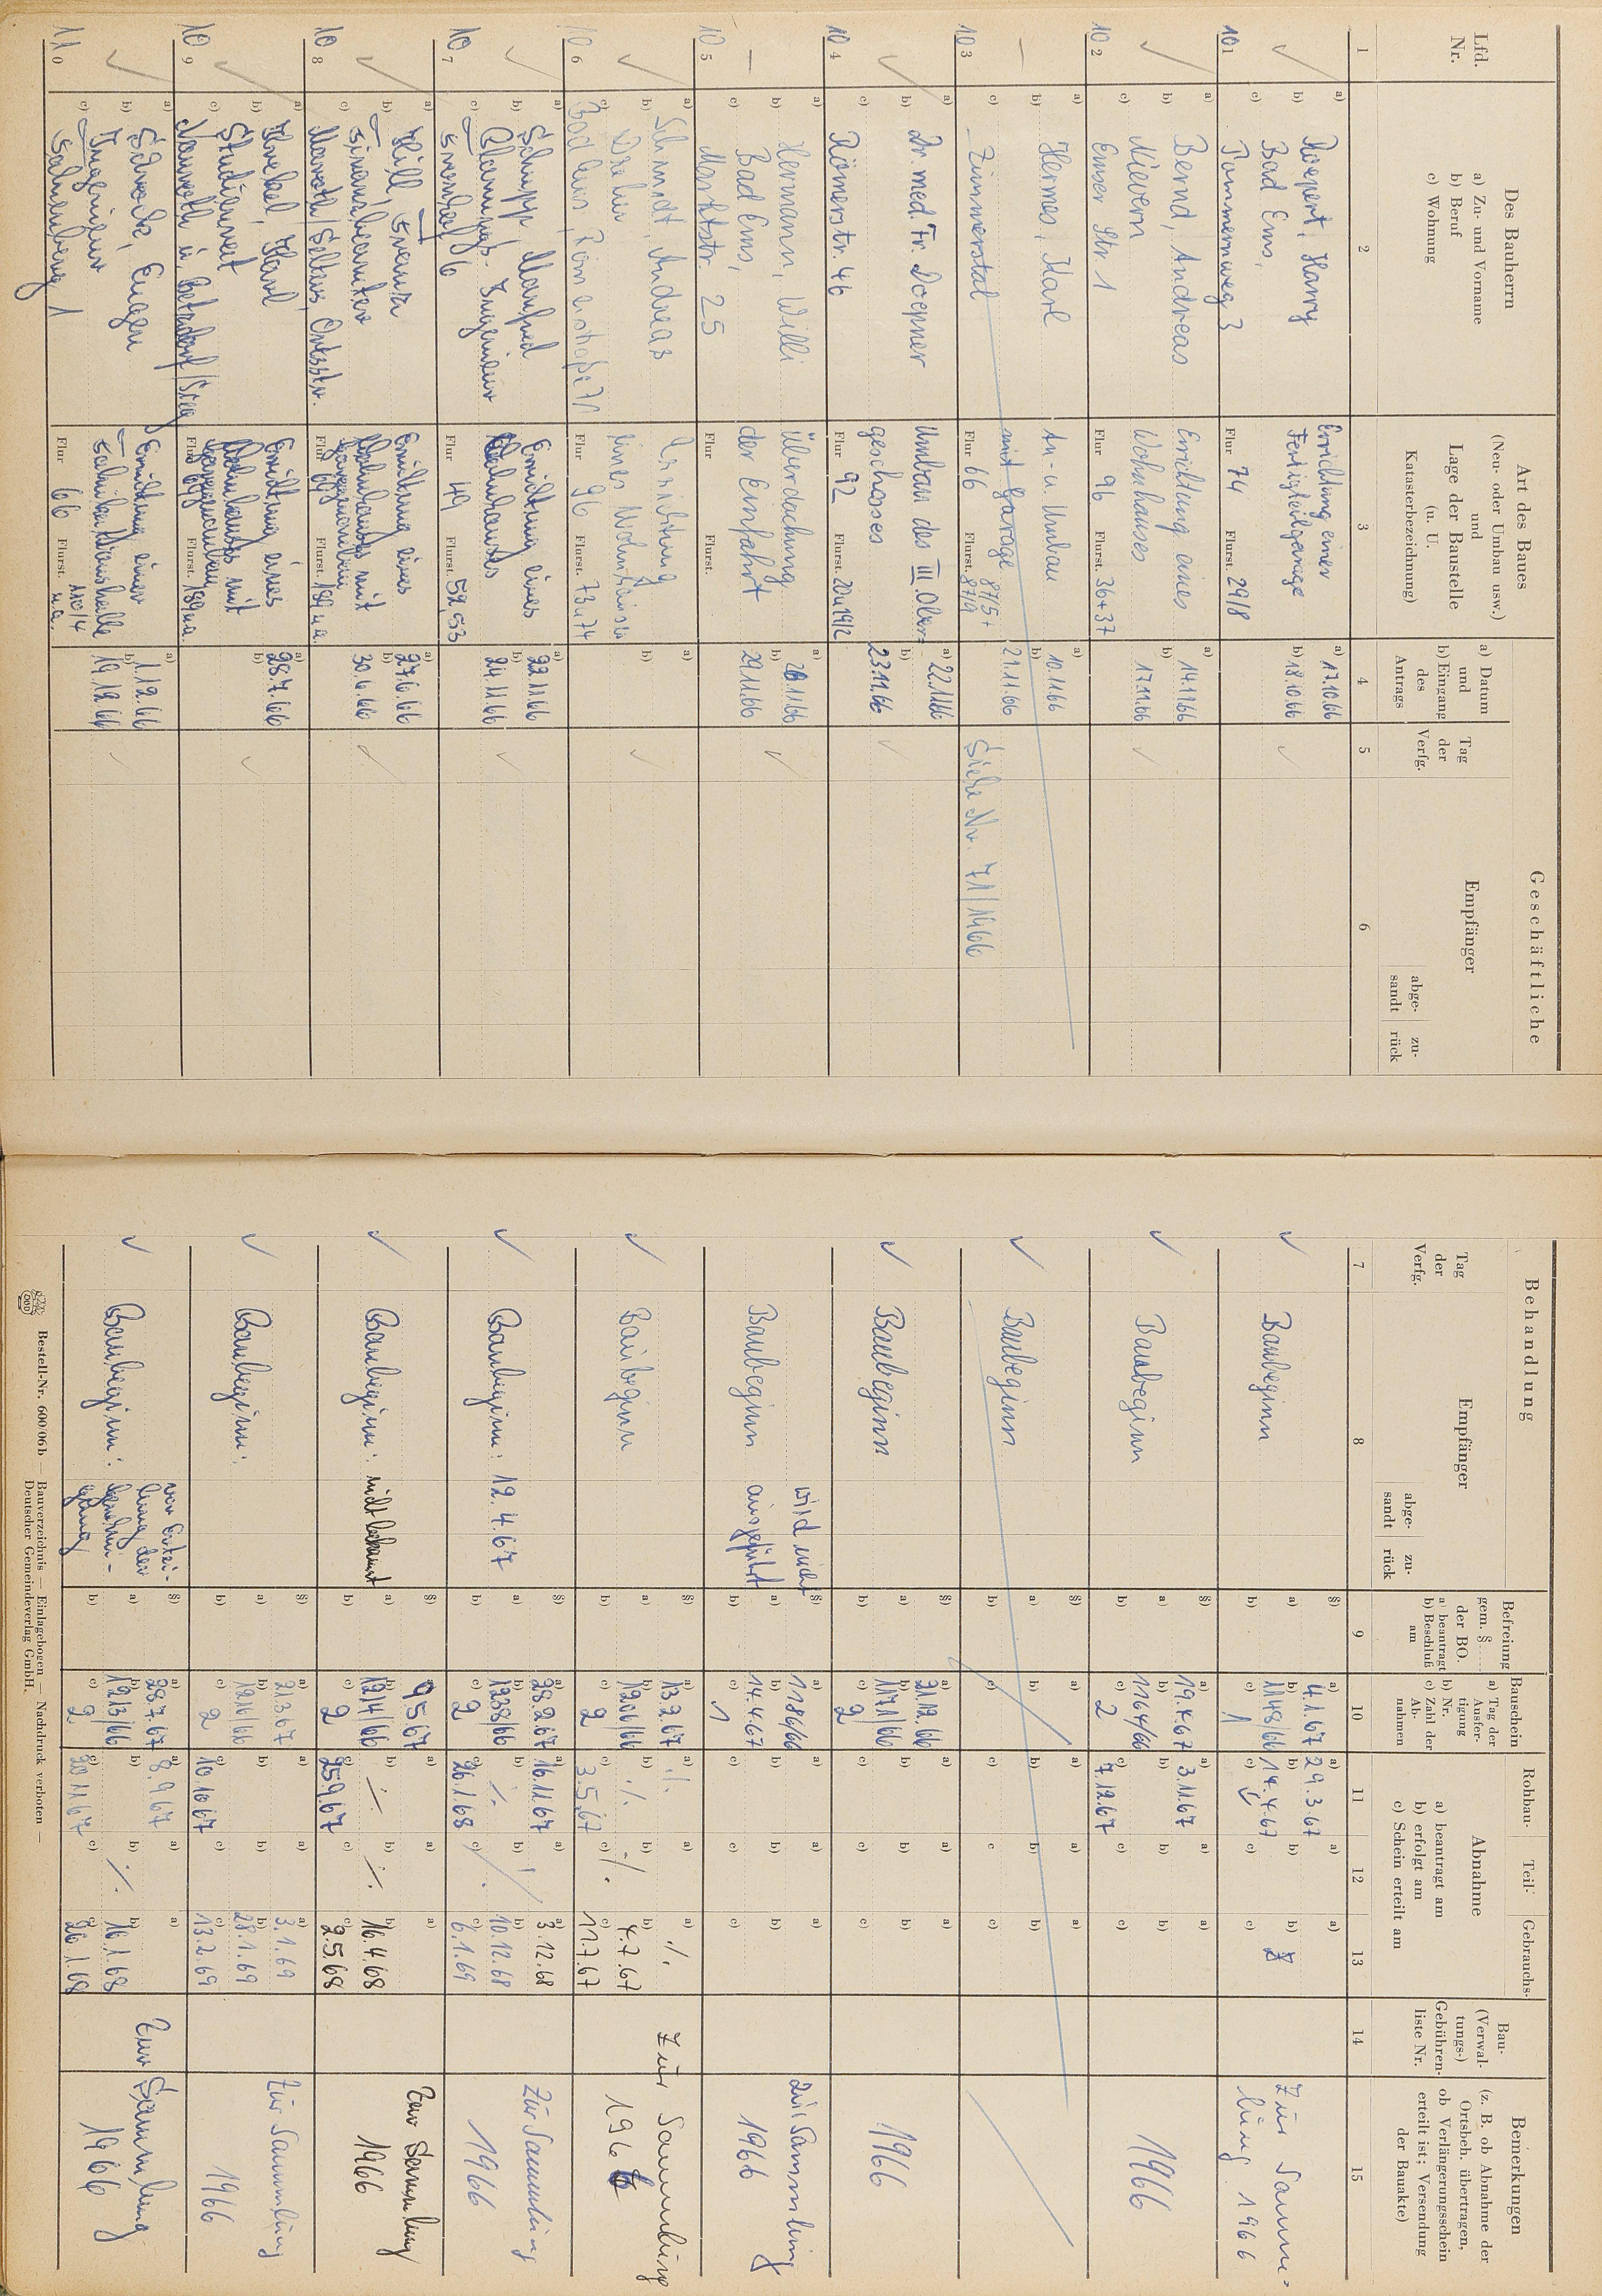 Geschäftliche
Lfd. Nr.
Des Bauherrn
a) Zu- und Vorname
b) Beruf
c) Wohnung
Art des Baues
(Neu- oder Umbau usw.)
und
Lage der Baustelle
(u. U.
Katasterbezeichnung)
a) Datum
und
b) Eingang
des
Antrags
Tag
der
Verfg.
Empfänger
abge-
sandt
zu-
rück
1 2 3 4 5 6
101
a) Roepert, Harry
b) Bad Ems,
c) Pommernweg 3
Errichtung einer
Fertigteilgarage
Flur 74 Flurst. 29/8
a) 17.10.66
b) 18.10.66
102
a) Bernd, Andreas
b) Nievern
c) Emser Str 1
Errichtung eines
Wohnhauses
Flur 96 Flurst. 36+37
a) 14.11.66
b) 17.11.66
103
a) Hermes, Karl
b)
c) Zimmerstal
An- u. Umbau
mit Garage
Flur 66 Flurst. 87/5+
87/9
a) 10.11.66
b) 21.11.66
Siehe Nr. 71/1466
104
a) Dr. med. Fr. Doepner
b)
c) Römerstr. 46
Umbau des III. Ober-
geschosses
Flur 92 Flurst. 20u19/2
a) 22.11.66
b) 23.11.66
105
a) Hermann, Willi
b) Bad Ems,
c) Marktstr. 25
Überdachung
der Einfahrt
Flur Flurst.
a) 28.11.66
b) 29.11.66
106
a) Schmidt, Andreas
b) Dreher
c) Bad Ems, Römerstraße 71
Errichtung
eines Wohnhauses
Flur 96 Flurst. 73u.74
a)
b)
107
a) Schupp, Manfred
b) Planungs-Ingenieur
c)
Errichtung eines
Wohnhauses
Flur 49 Flurst. 52,53
a) 22.11.66
b) 24.11.66
108
a) Hill,
b) Finanzbeamter
c)
Errichtung eines
Wohnhauses mit
Flur 69 Flurst. 189 u.a.
a) 27.6.66
b) 30.6.66
109
a)
b) Studienrat
c)
Errichtung eines
Wohnhauses mit
Flur 69 Flurst. 189 u.a.
a) 28.7.66
b)
110
a) Schrock, Eugen
b) Ingenieur
c) Fahnenberg 1
Errichtung einer
Flur 66 Flurst. 110/4
u.a.
a) 1.12.66
b) 19.12.66
Behandlung
Tag
der
Verfg.
Empfänger
abge-
sandt
zu-
rück
Befreiung
gem. §
der BO.
a) beantragt
b) Beschluß
am
Bauschein
a) Tag der
Ausfer-
tigung
b) Nr.
c) Zahl der
Ab-
nahmen
Rohbau- Teil- Gebrauchs-
Abnahme
a) beantragt am
b) erfolgt am
c) Schein erteilt am
Bau-
(Verwal-
tungs-)
Gebühren-
liste Nr.
Bemerkungen
(z. B. ob Abnahme der
Ortsbeh. übertragen,
ob Verlängerungsschein
erteilt ist; Versendung
der Bauakte)
7 8 9 10 11 12 13 14 15
Baubeginn
a) 4.1.67
b) 1148/66
c) 1
a) 29.3.67
b) 14.4.67
Zur Samm-
lung 1966
Baubeginn
a) 19.4.67
b) 1164/66
c) 2
a) 3.11.67
c) 7.12.67
1966
Baubeginn
Baubeginn
a) 21.12.66
b) 1171/66
c) 2
1966
Baubeginn
wird nicht
ausgeführt
1186/66
14.4.67
c) 1
Zur Sammlung
1966
Baubeginn
a) 13.2.67
b) 1206/66
c) 2
c) 3.5.67
b) 4.7.67
c) 11.7.67
Zur Sammlung
1966
Baubeginn: 12.4.67
a) 28.2.67
b) 1238/66
c) 2
a) 16.11.67
c) 26.1.68
a) 3.12.68
b) 10.12.68
c) 6.1.69
Zur Sammlung
1966
Baubeginn: nicht bekannt
a) 9.5.67
b) 1214/66
c) 2
c) 25.9.67
b) 16.4.68
c) 2.5.68
Zur Sammlung
1966
Baubeginn:
a) 21.3.67
b) 1216/66
c) 2
c) 10.10.67
a) 3.1.69
b) 28.1.69
c) 13.2.69
Zur Sammlung
1966
Baubeginn:
vor Ertei-
lung der
Genehmi-
gung
a) 28.7.67
b) 1213/66
c) 2
a) 8.9.67
c) 20.11.67
b) 16.1.68
c) 26.1.68
Zur Sammlung
1966
Bestell-Nr. 600/06b — Bauverzeichnis — Einlagebogen — Nachdruck verboten —
Deutscher Gemeindeverlag GmbH.